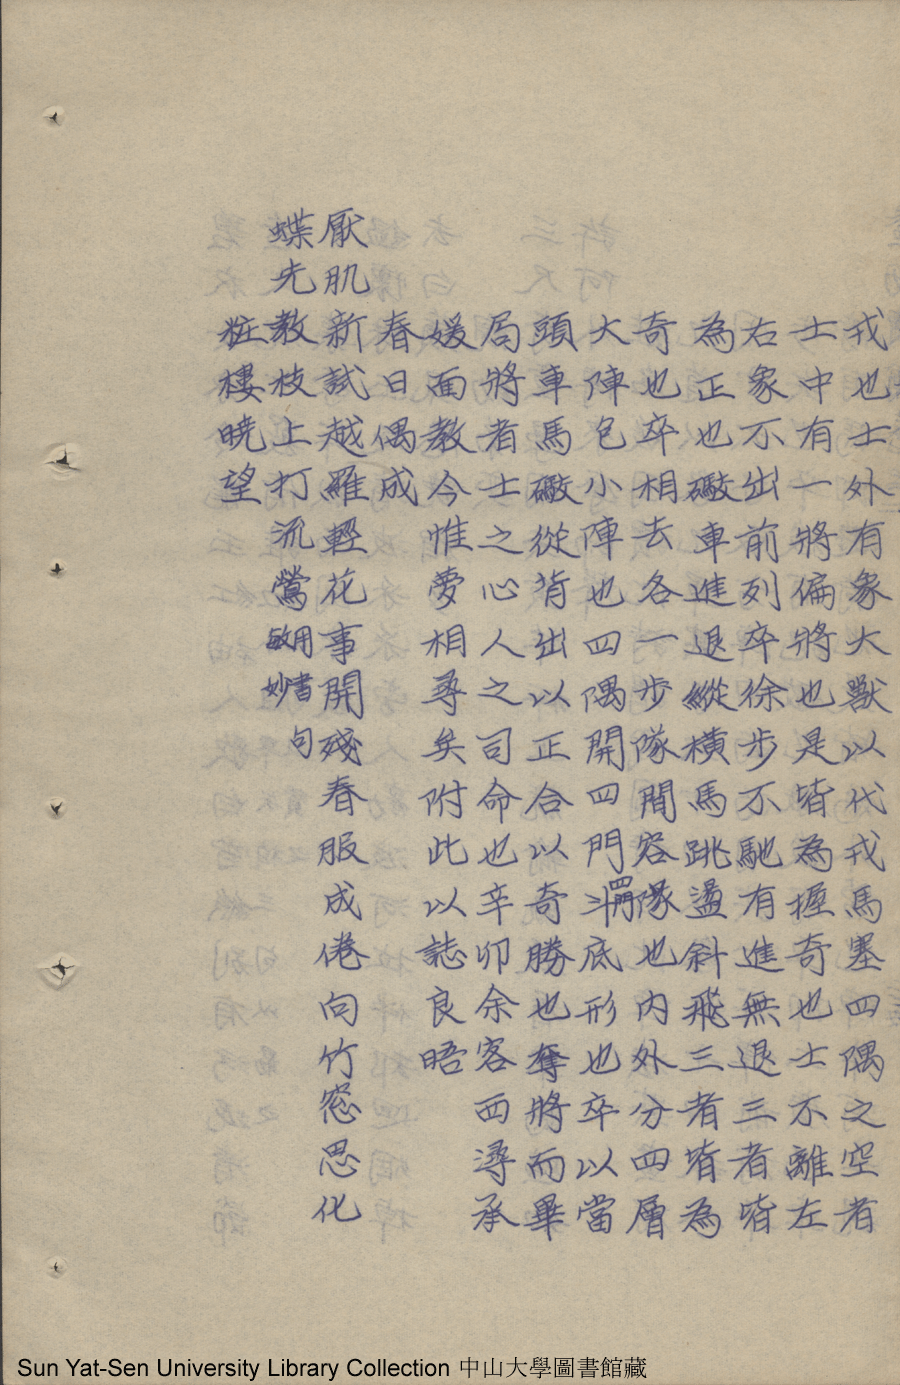 戎也士外有象大獸以代戎馬塞四隅之空者
士中有一將偏將也是皆為握奇也士不離左
右象不出前列卒徐步不馳有進無退三者皆
為正也礮車進退縱橫馬跳盪斜飛三者皆為
奇也卒相去各一步隊間容隊也內外分四層
大陣包小陣也四隅開四門斗底形也卒以當
頭車馬礮從背出以正合以奇勝也奪將而畢
局將者士之心人之司命也辛卯余客西潯承
媛面教今惟夢相尋矣附此以誌良晤
春日偶成
厭肌新試越羅輕花事開殘春服成倦向竹窓思化
蝶先教枝上打流鶯用書句敏妙
粧樓暁望
Sun Yat-Sen University Library Collection 中山大學圖書館藏